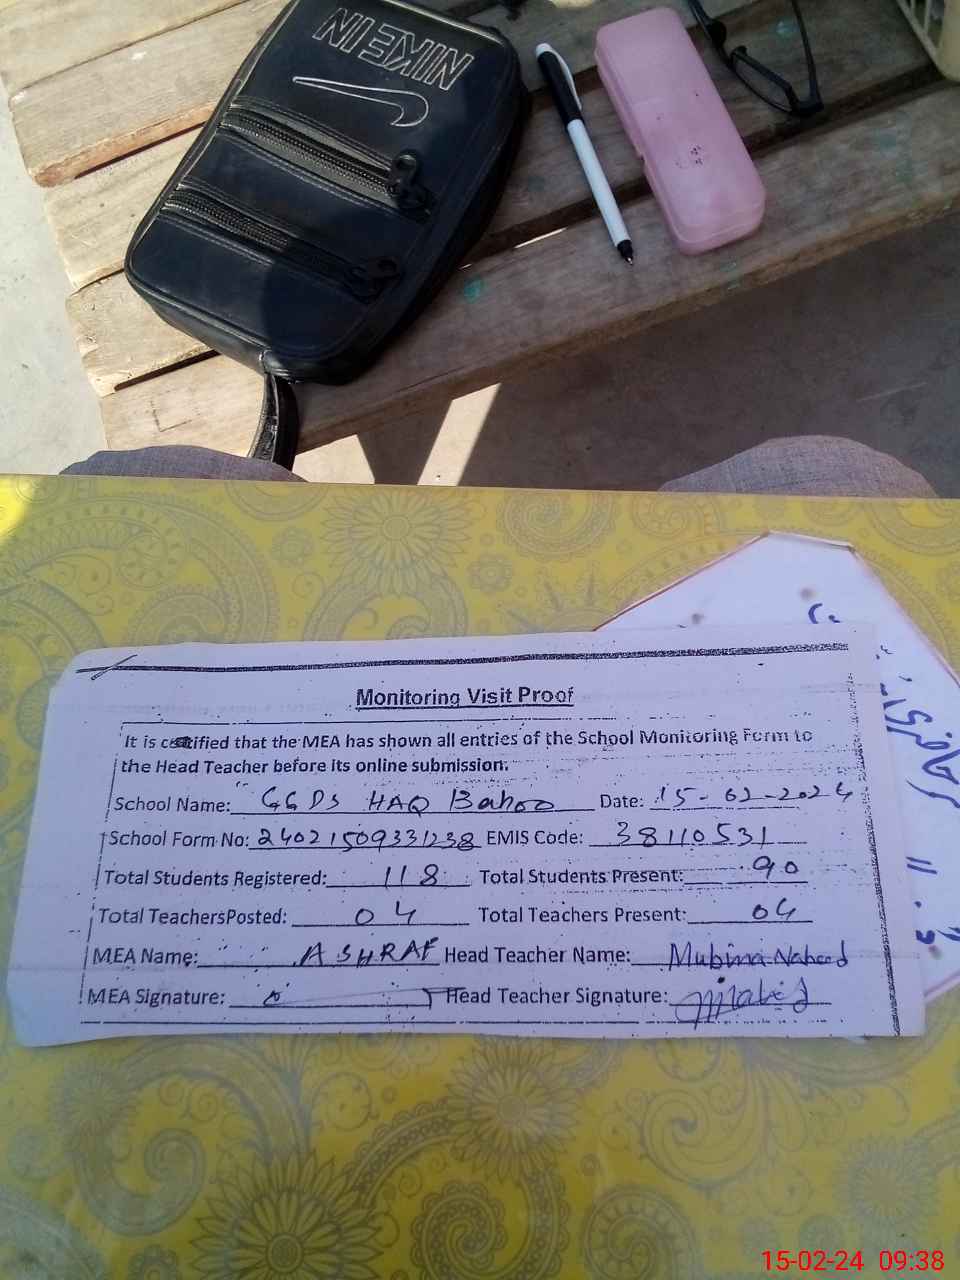 NIKEIN
Monitoring Visit Proof
It is certified that the MEA has shown all entries of the School Monitoring Form to
the Head Teacher before its online submission.
School Name: GGPS HAQ Bahoo Date: 15-02-2024
School Form No: 24021509331238 EMIS Code: 38110531
Total Students Registered: 118 Total Students Present: 90
Total TeachersPosted: 04 Total Teachers Present: 04
MEA Name: ASHRAF Head Teacher Name: Mubina Naheed
MEA Signature: Head Teacher Signature:
15-02-24 09:38